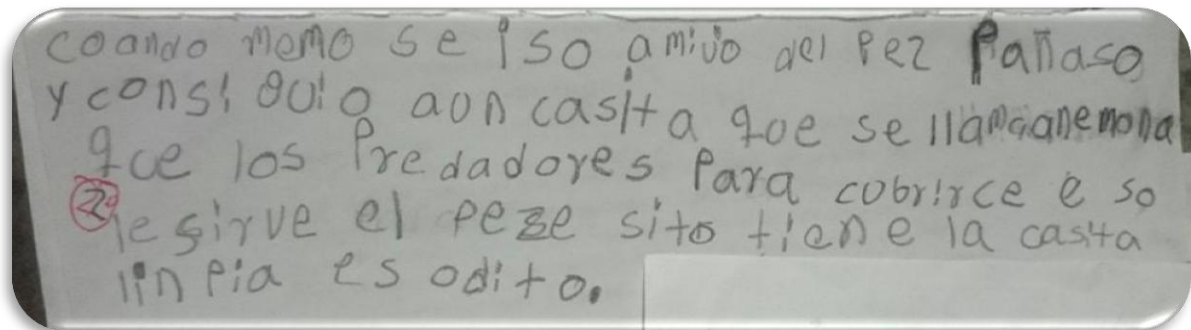 coando memo se iso amivo del pez pañaso
y consi guio aon casita que se llamaanemona
que los Predadores Para cobrirce e so
2º le sirve el peze sito tiene la casita
linpia es odito.